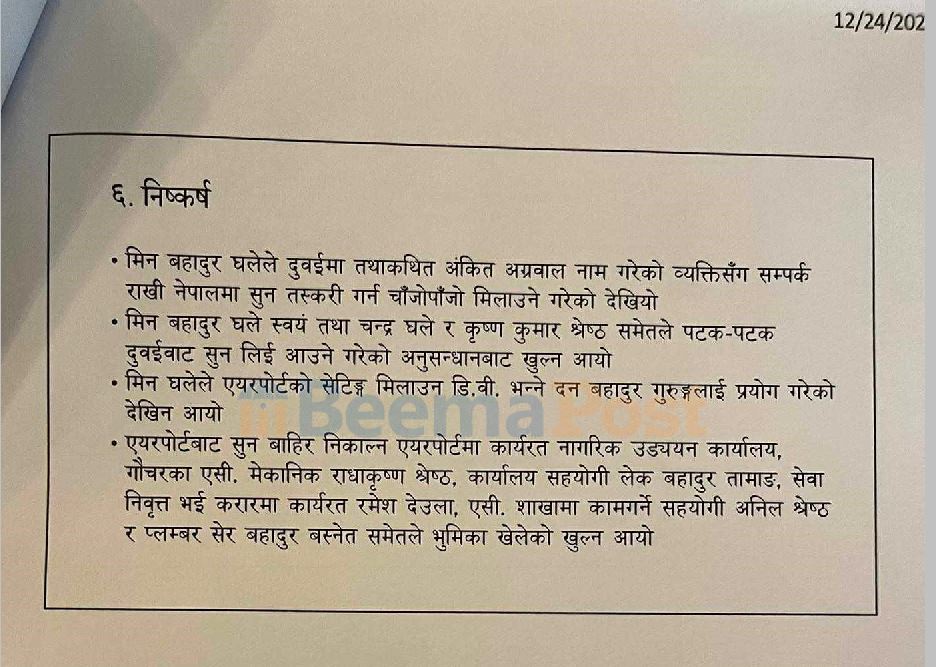 12/24/202
६. निष्कर्ष
• मिन बहादुर घलेले दुवईमा तथाकथित अंकित अग्रवाल नाम गरेको व्यक्तिसँग सम्पर्क
राखी नेपालमा सुन तस्करी गर्न चाँजोपाँजो मिलाउने गरेको देखियो
• मिन बहादुर घले स्वयं तथा चन्द्र घले र कृष्ण कुमार श्रेष्ठ समेतले पटक-पटक
दुवईवाट सुन लिई आउने गरेको अनुसन्धानबाट खुल्न आयो
• मिन घलेले एयरपोर्टको सेटिङ्ग मिलाउन डि.वी. भन्ने दन बहादुर गुरुङ्गलाई प्रयोग गरेको
देखिन आयो
BeemaPost
• एयरपोर्टबाट सुन बाहिर निकाल्न एयरपोर्टमा कार्यरत नागरिक उड्ययन कार्यालय,
गौचरका एसी. मेकानिक राधाकृष्ण श्रेष्ठ, कार्यालय सहयोगी लेक बहादुर तामाङ, सेवा
निवृत्त भई करारमा कार्यरत रमेश देउला, एसी. शाखामा कामगर्ने सहयोगी अनिल श्रेष्ठ
र प्लम्बर सेर बहादुर बस्नेत समेतले भुमिका खेलेको खुल्न आयो